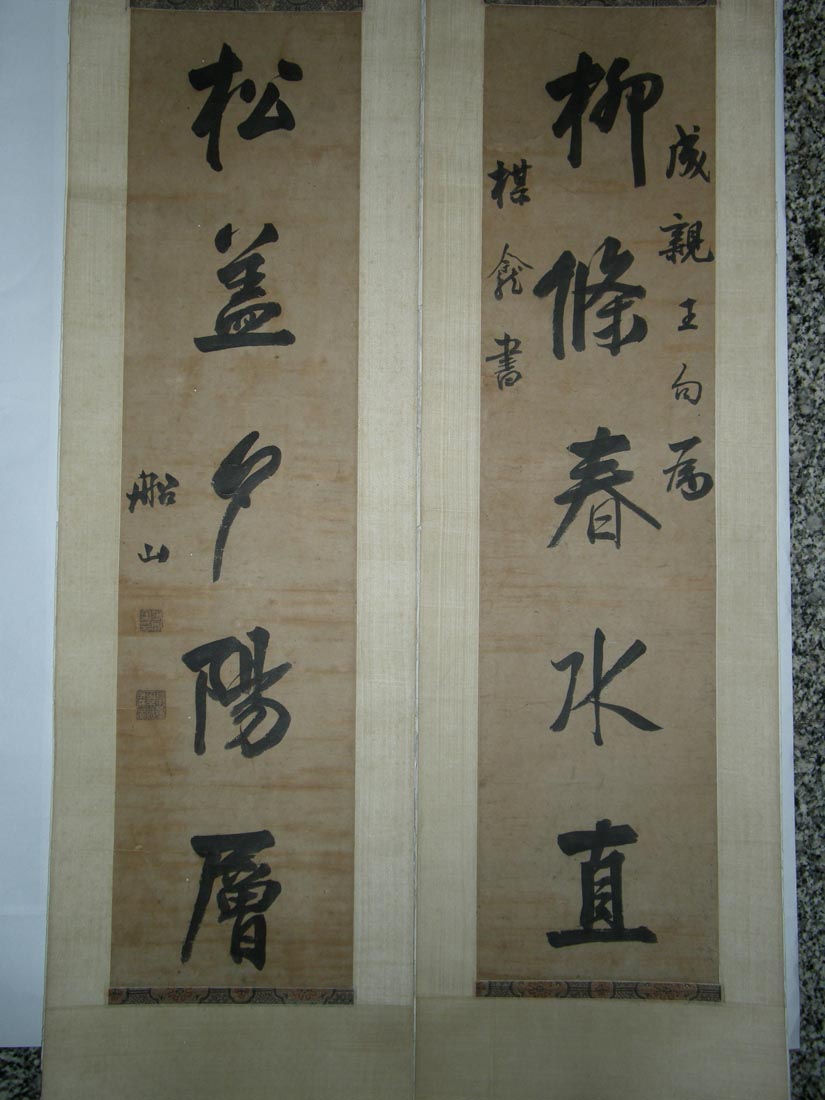 成親王句為
柳條春水直
楳龕書
松盖夕陽層
船山